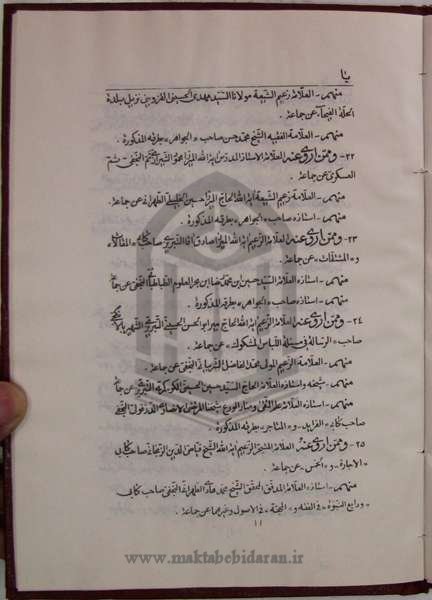 يا
منهم - العلامة زعيم الشيعة مولانا السيد مهدي الحسيني القزويني نزيل بلدة
الحلة الفيحاء عن جماعة .
منهم - العلامة الفقيه الشيخ محمد حسن صاحب « الجواهر » بطرقه المذكورة
٢٢ - وممن اروي عنه العلامة الاستاذ المدرس اية الله الميرزا محمود الشيرازي ثم النجفي - ثم
العسكري عن جماعة
منهم - العلامة زعيم الشيعة اية الله الحاج الميرزا حسين الخليلي الطهراني عن جماعة
منهم - استاذه صاحب « الجواهر » بطرقه المذكورة .
٢٣ - وممن اروي عنه العلامة الزعيم اية الله الميرزا صادق اقا التبريزي صاحب « المقالات »
و « المشتقات » عن جماعة .
منهم - استاذه العلامة السيد حسين ابن محمد رضا ابن بحر العلوم الطباطبائي النجفي عن جماعة
منهم - استاذه صاحب « الجواهر » بطرقه المذكورة .
٢٤ - وممن اروي عنه العلامة الزعيم اية الله الحاج ميرزا ابو الحسن الحسيني التبريزي الشهير بالانگجي
صاحب « الرسالة في مسئلة اللباس المشكوك » عن جماعة .
منهم - العلامة الزعيم المولى محمد الفاضل الشربياني النجفي عن جماعة
منهم - شيخه واستاذه العلامة الحاج السيد حسين الحسيني الكوهكمري التبريزي عن جماعة
منهم - استاذه العلامة علم التقى ومنار الورع شيخنا المرتضى الانصاري الدزفولي النجفي
صاحب كتابي « الفرايد » و « المتاجر » بطرقه المذكورة .
٢٥ - وممن اروي عنه العلامة المتبحر الزعيم اية الله الشيخ فياض الدين الزنجاني صاحب كتابي
« الاجارة » و « الخمس » عن جماعة .
منهم - استاذه العلامة المدقق المحقق الشيخ محمد هادي الطهراني النجفي صاحب كتابي
« ودايع النبوة » في الفقه و « المحجة » في الاصول وغيرهما عن جماعة .
١١
www.maktabebidaran.ir